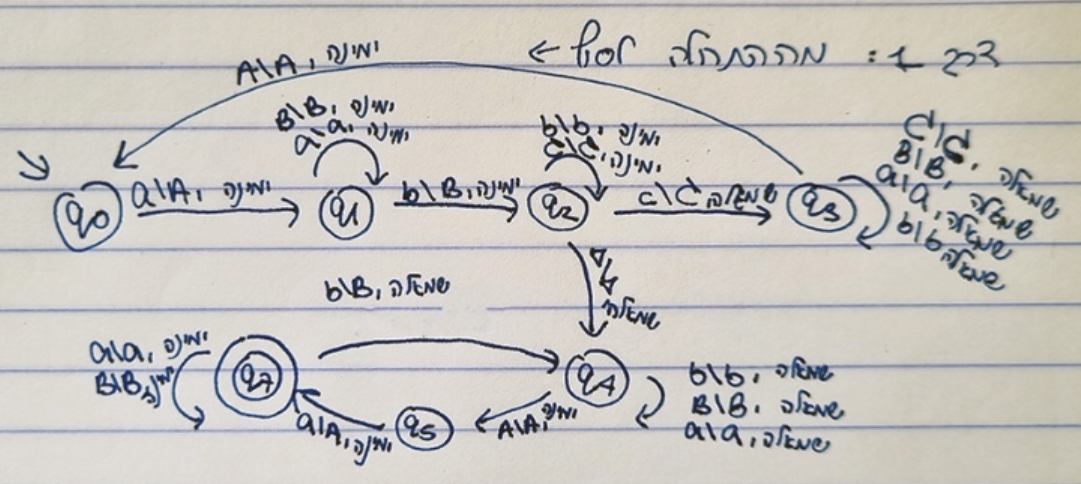 דרך 1: מההתחלה לסוף ←
A\A, ימינה
B\B, ימינה
a\a, ימינה
b\b, ימינה
C\C, ימינה
C\C, שמאלה
B\B, שמאלה
a\a, שמאלה
b\b שמאלה
q0
a\A, ימינה
q1
b\B, ימינה
q2
c\C, שמאלה
q3
b\B, שמאלה
שמאלה
a\a, ימינה
B\B, ימינה
q7
a\A, ימינה
q5
A\A, ימינה
q4
b\b, שמאלה
B\B, שמאלה
a\a, שמאלה